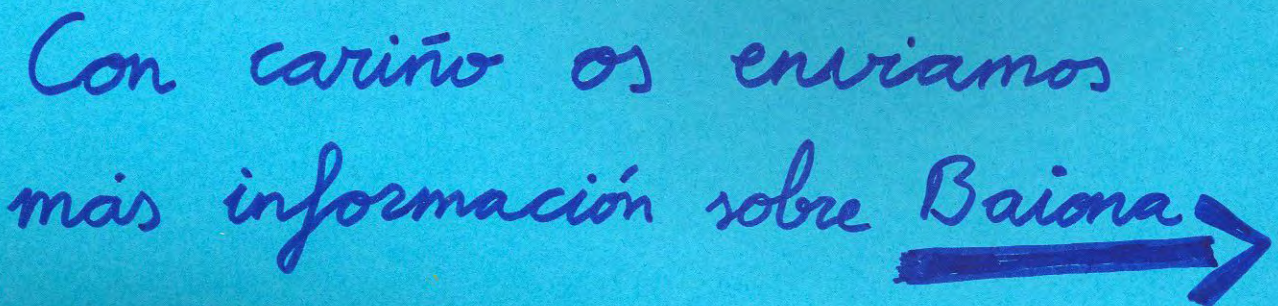 Con cariño os enviamos
más información sobre Baiona